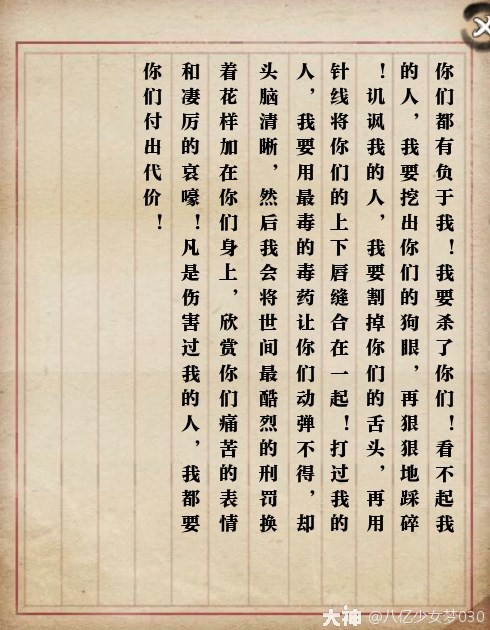 你们都有负于我！我要杀了你们！看不起我
的人，我要挖出你们的狗眼，再狠狠地踩碎
！讥讽我的人，我要割掉你们的舌头，再用
针线将你们的上下唇缝合在一起！打过我的
人，我要用最毒的毒药让你们动弹不得，却
头脑清晰，然后我会将世间最酷烈的刑罚换
着花样加在你们身上，欣赏你们痛苦的表情
和凄厉的哀嚎！凡是伤害过我的人，我都要
你们付出代价！
大神 @八亿少女梦030